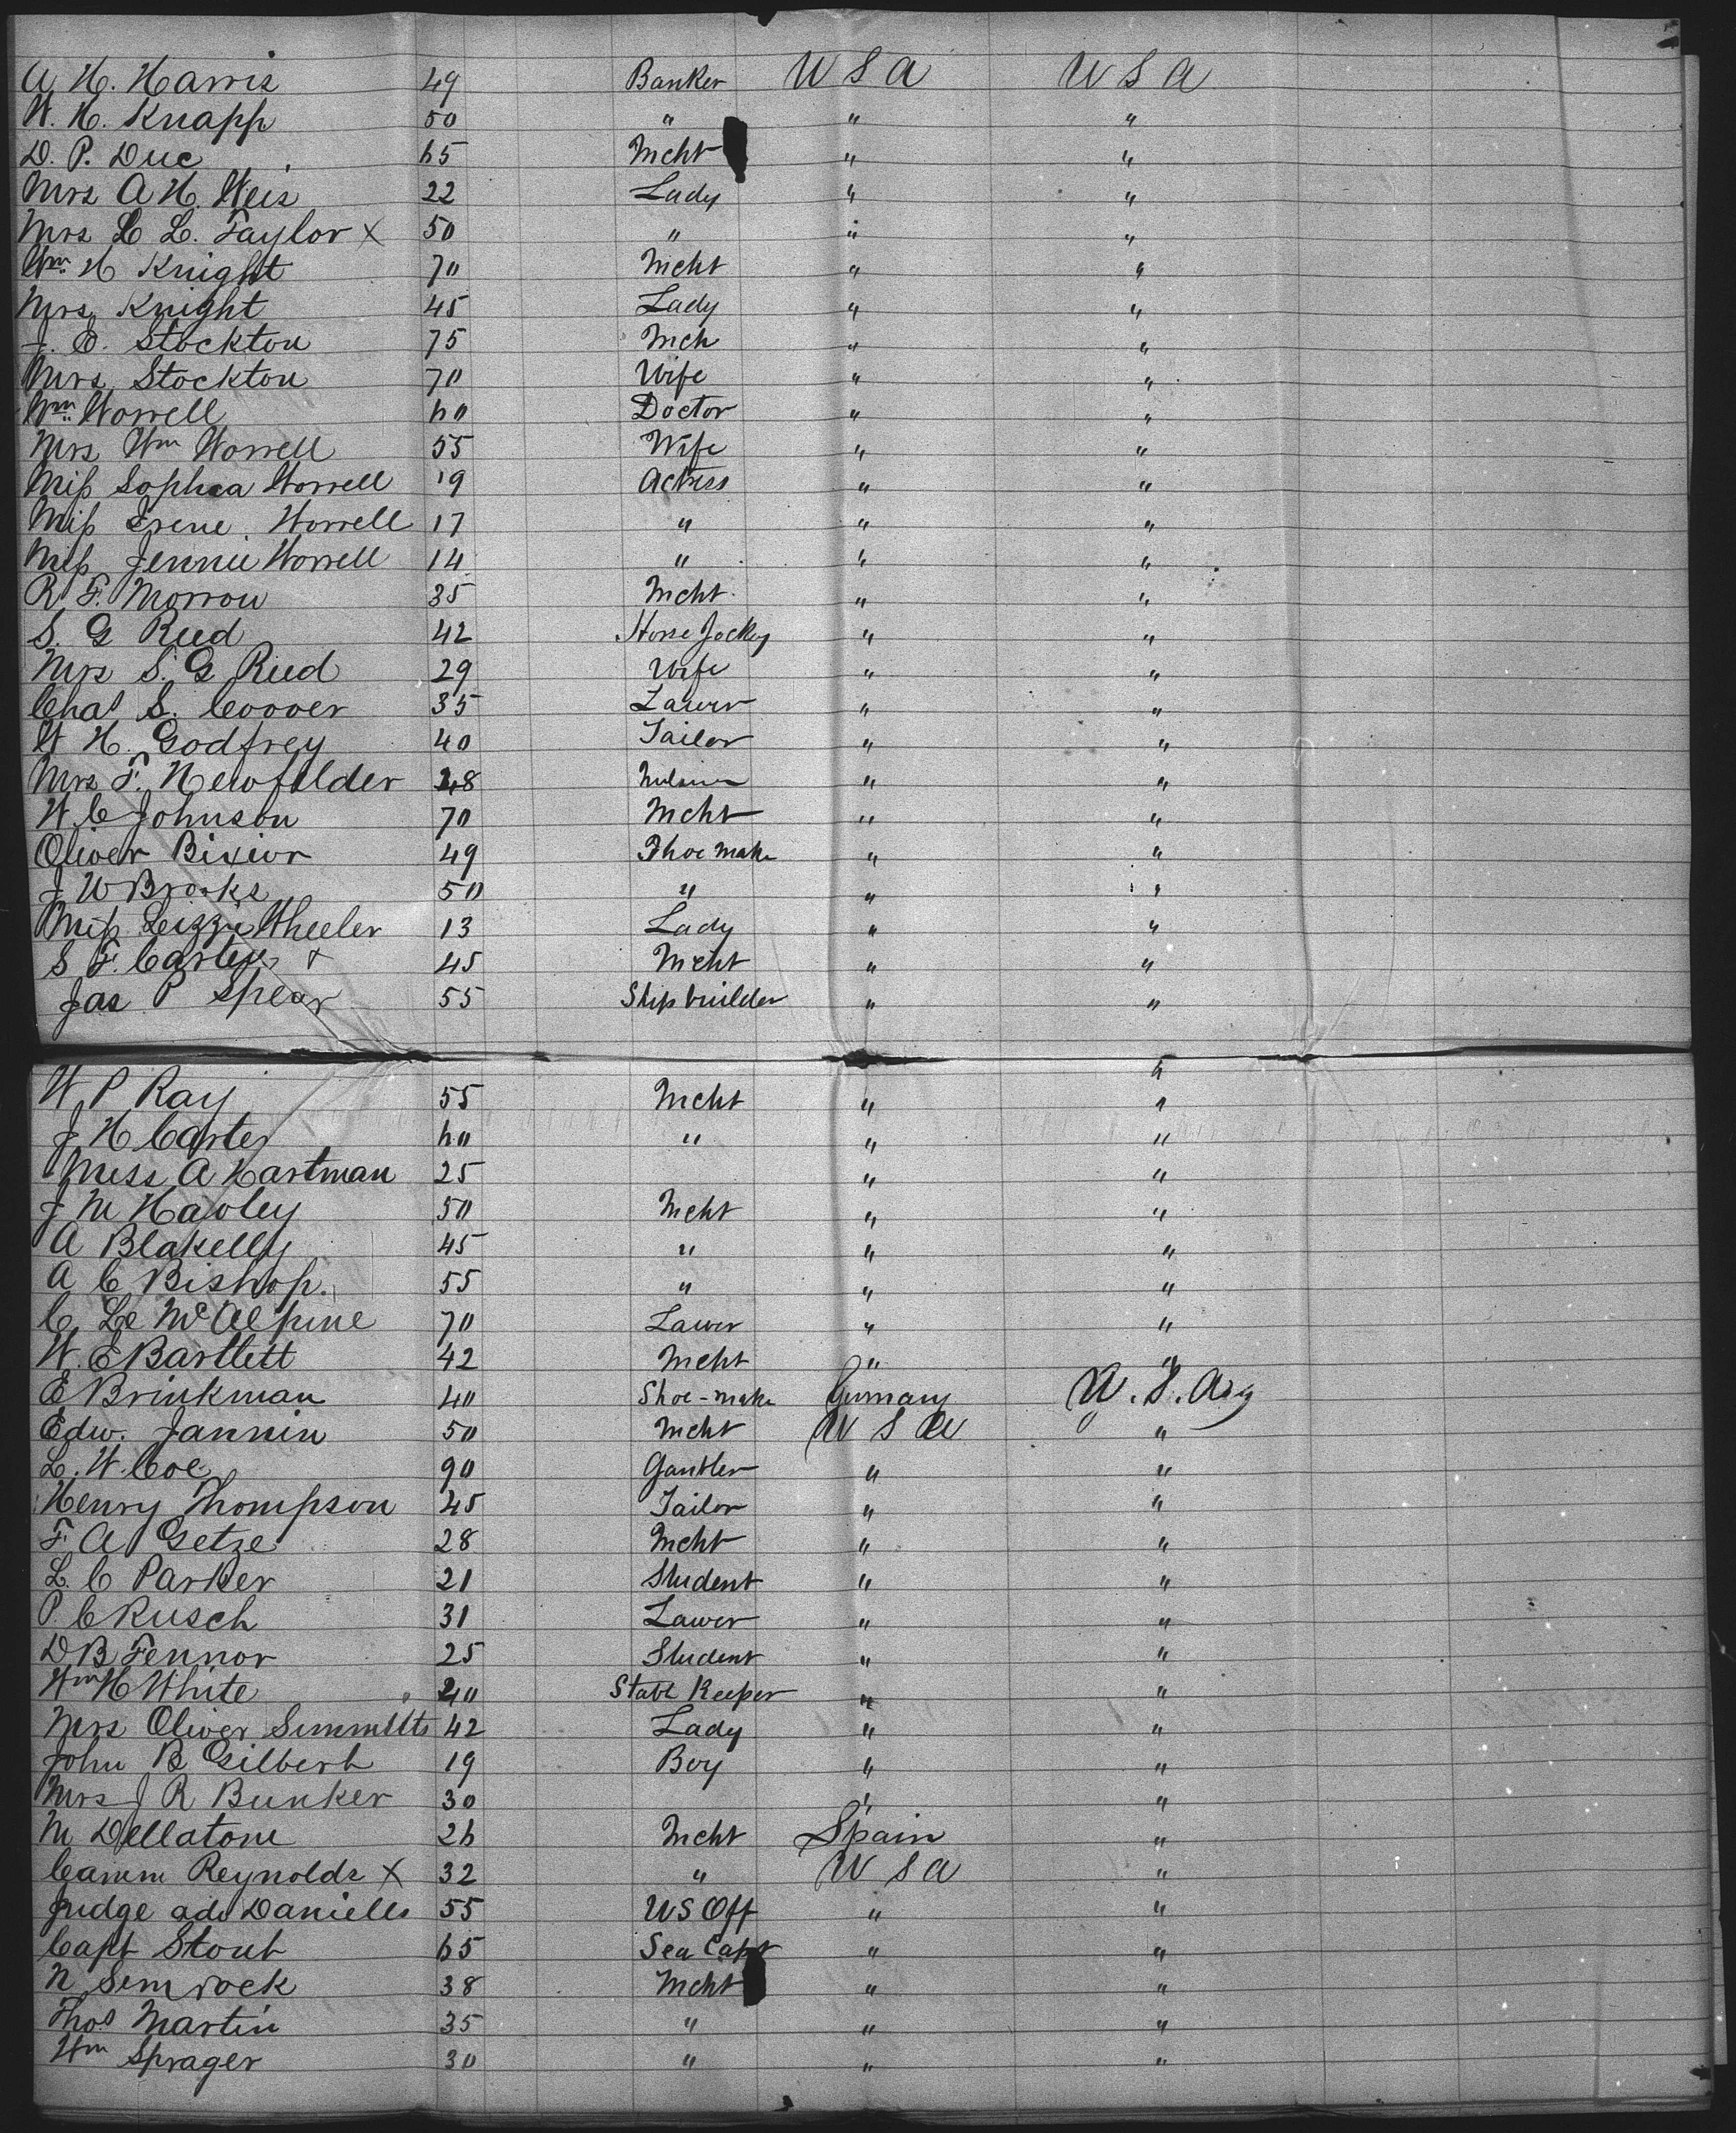 A H. Harris 49 Banker U S A U S A
W. H. Knapp 50 " " "
D. P. Duc 65 Mcht " "
Mrs A H. Weis 22 Lady " "
Mrs L L. Taylor X 50 " " "
Wm. H Knight 70 Mcht " "
Mrs Knight 45 Lady " "
J. D. Stockton 75 Mch " "
Mrs Stockton 70 Wife " "
Wm. Worrell 60 Doctor " "
Mrs Wm Worrell 55 Wife " "
Miss Sophia Worrell 19 Actress " "
Miss Irene Worrell 17 " " "
Miss Jennie Worrell 14 " " "
R. F. Morrow 35 Mcht. " "
S. G Reed 42 Horse Jockey " "
Mrs S. G Reed 29 Wife " "
Chas S. Coover 35 Lawer " "
W H. Godfrey 40 Tailor " "
Mrs F. Newfelder 28 " "
W. C Johnson 70 Mcht " "
Oliver Bixior 49 Shoe make " "
J W Brooks 50 " " "
Miss Lizzie Wheeler 13 Lady " "
S F. Carter 45 Mcht " "
Jas P Spear 55 Ship builder " "
"
W P Ray 55 Mcht " "
J H Carter 60 " " "
Miss A Hartman 25 " "
J M Hawley 50 Mcht " "
A Blakelly 45 " " "
A C Bishop. 55 " " "
C Le McAlpine 70 Lawer " "
W. E Bartlett 42 Mcht " "
E Brinkman 40 Shoe-make Germany U. S. A
Edw. Jannin 50 Mcht U S A "
L. W. Coe 90 Gantler " "
Henry Thompson 45 Tailor " "
F. A Getze 28 Mcht " "
L. C Parker 21 Student " "
P. C Rusch 31 Lawer " "
D B Fennor 25 Student " "
Wm H White 40 Stabl Keeper " "
Mrs Oliver Simmitts 42 Lady " "
John B Gilbert 19 Boy " "
Mrs J R Bunker 30 " "
M Dellatorre 26 Mcht Spain "
Camm Reynolds X 32 " U S A "
Judge ade Daniells 55 US Off " "
Capt Stout 65 Sea Capt " "
N Simrock 38 Mcht " "
Thos Martin 35 " " "
Wm Sprager 30 " " "